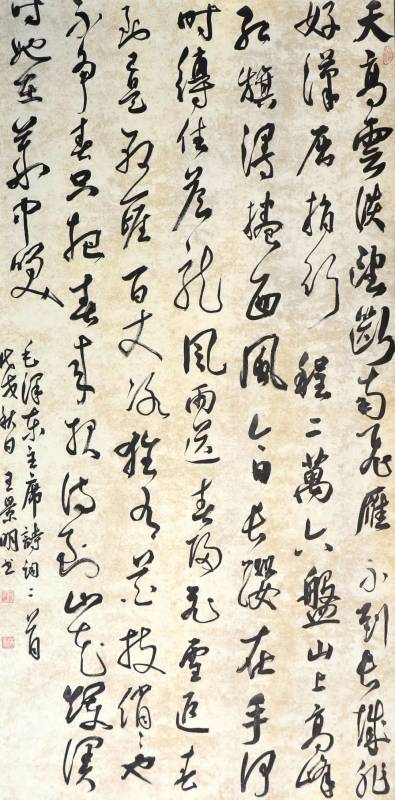 天高雲淡望斷南飛雁不到長城非
好漢屈指行程二萬六盤山上高峰
紅旗漫捲西風今日長纓在手何
時縛住蒼龍風雨送春歸飛雪迎春
到已是懸崖百丈冰猶有花枝俏〻也
不爭春只把春來報待到山花爛漫
時她在叢中笑
毛澤東主席詩詞二首
戊戌秋日王景明書